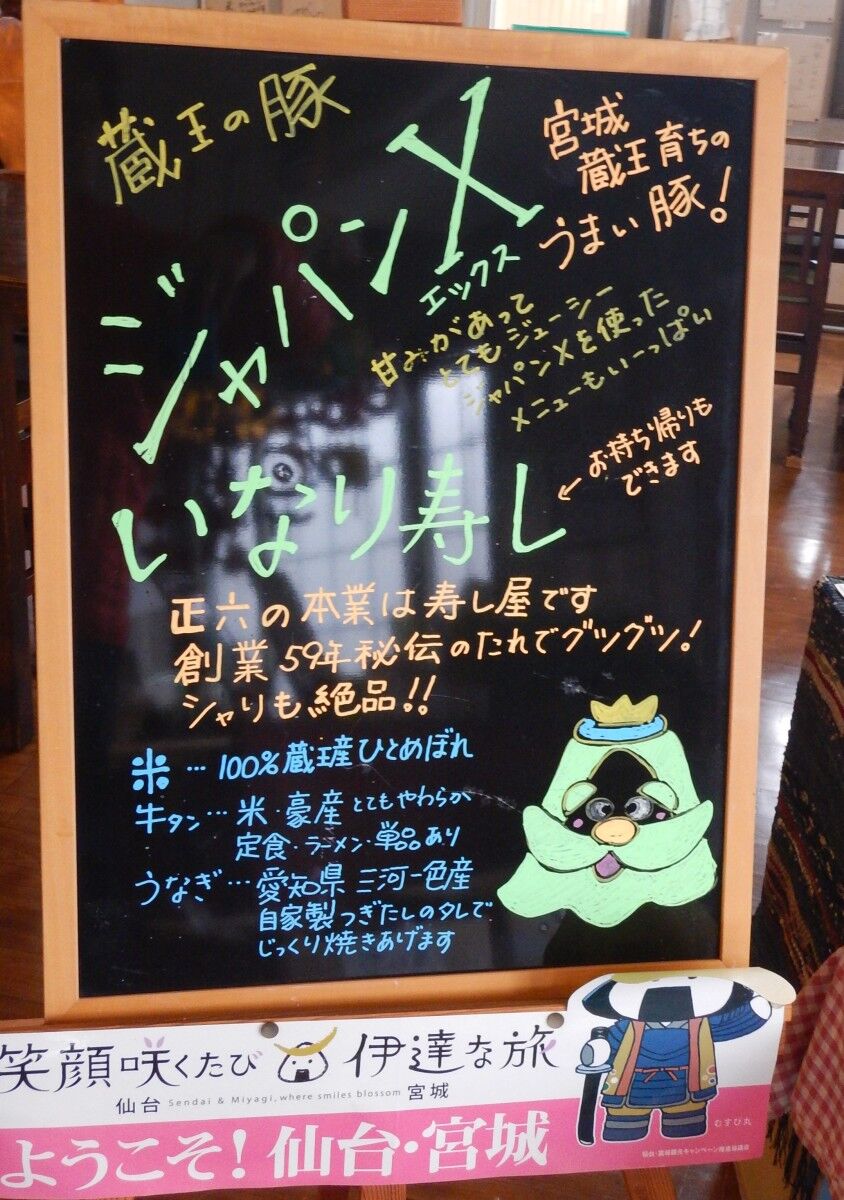 蔵王の豚
ジャパンX
エックス
宮城
蔵王育ちの
うまい豚！
甘みがあって
とてもジューシー
ジャパンXを使った
メニューもいーっぱい
いなり寿し
←お持ち帰りも
できます
正六の本業は寿し屋です
創業59年秘伝のたれでグツグツ！
シャリも絶品！！
米…100%蔵王産ひとめぼれ
牛タン…米・豪産とてもやわらか
定食・ラーメン・単品あり
うなぎ…愛知県三河一色産
自家製つぎたしのタレで
じっくり焼きあげます
笑顔咲くたび 伊達な旅
仙台 Sendai & Miyagi, where smiles blossom 宮城
ようこそ！仙台・宮城
むすび丸
仙台・宮城観光キャンペーン推進協議会